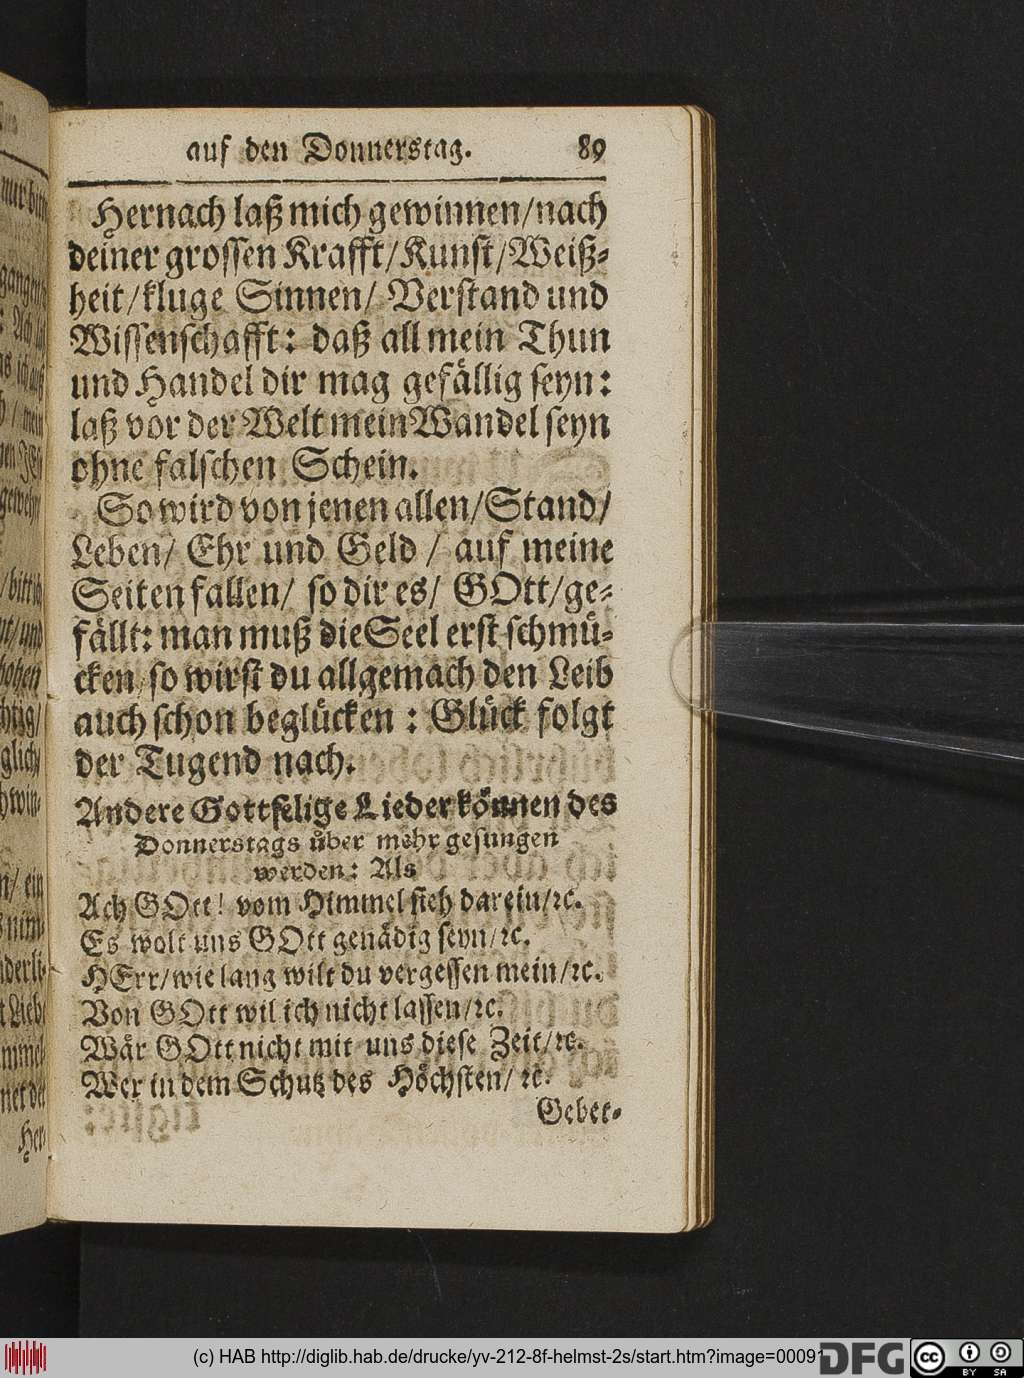 auf den Donnerstag. 89
Hernach laß mich gewinnen/nach
deiner grossen Krafft/Kunst/Weiß-
heit/kluge Sinnen/ Verstand und
Wissenschafft: daß all mein Thun
und Handel dir mag gefällig seyn:
laß vor der Welt mein Wandel seyn
ohne falschen Schein.
So wird von jenen allen/Stand/
Leben/ Ehr und Geld / auf meine
Seiten fallen/ so dir es/ GOtt/ge-
fällt: man muß die Seel erst schmü-
cken/so wirst du allgemach den Leib
auch schon beglücken : Glück folgt
der Tugend nach.
Andere Gottselige Lieder können des
Donnerstags über mehr gesungen
werden: Als
Ach GOtt! vom Himmel sieh darein/ꝛc.
Es wolt uns GOtt genädig seyn/ꝛc.
HErr/wie lang wilt du vergessen mein/ꝛc.
Von GOtt wil ich nicht lassen/ꝛc.
Wär GOtt nicht mit uns diese Zeit/ꝛc.
Wer in dem Schutz des Höchsten/ ꝛc.
Gebet-
(c) HAB http://diglib.hab.de/drucke/yv-212-8f-helmst-2s/start.htm?image=00091
DFG
cc BY SA